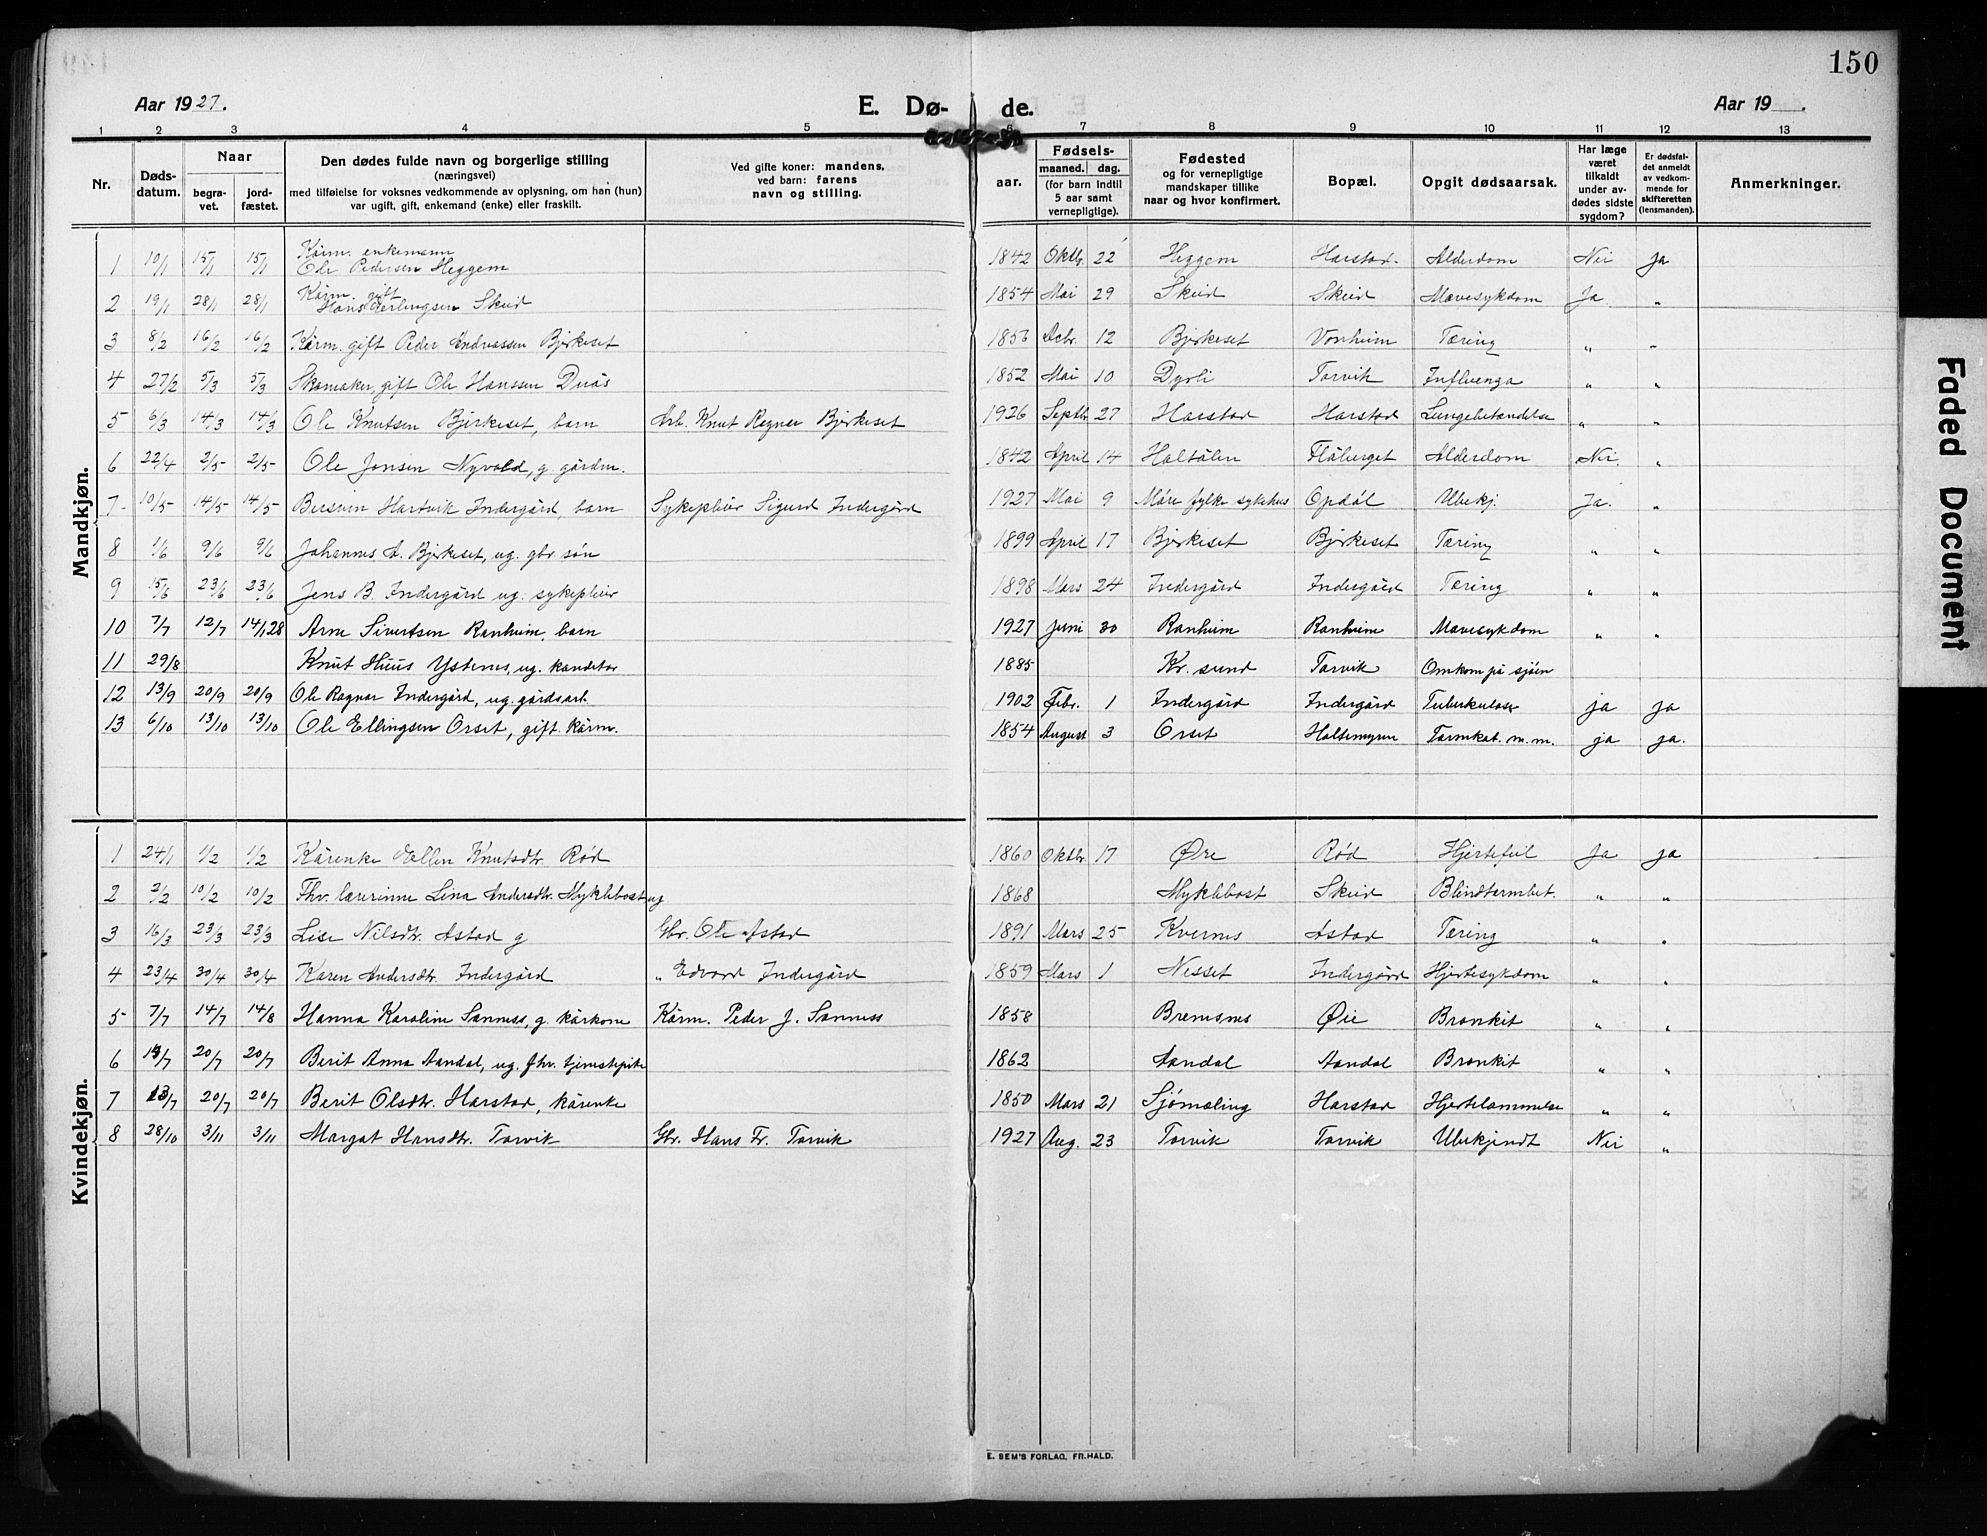 150
Aar 1927.
E. Dø- de.
Aar 19 .
1 2 3 4 5 6 7 8 9 10 11 12 13
Nr.
Døds-
datum.
Naar
begra-
vet.
jord-
fæstet.
Den dødes fulde navn og borgerlige stilling
(næringsvei)
med tilføielse for voksnes vedkommende av oplysning, om han (hun)
var ugift, gift, enkemand (enke) eller fraskilt.
Ved gifte koner: mandens,
ved barn: farens
navn og stilling.
aar.
Fødsels-
maaned. dag.
(for barn indtil
5 aar samt
vernepligtige).
Fødested
og for vernepligtige
mandskaper tillike
naar og hvor konfirmert.
Bopæl.
Opgit dødsaarsak.
Har læge
været
tilkaldt
under av-
dødes sidste
sygdom?
Er dødsfal-
det anmeldt
av vedkom-
mende for
skifteretten
(lensmanden).
Anmerkninger.
Mandkjøn.
1 10/1 15/1 15/1 Kårm. enkemann Ole Pedersen Heggem 1842 Oktbr. 22 Heggem Harstad. Alderdom Nei Ja
2 19/1 28/1 28/1 Kårm. gift Hans Erlingsen Skeid 1854 Mai 29 Skeid Skeid Mavesykdom Ja "
3 8/2 16/2 16/2 Kårm. gift Peder Endressen Bjerkeset 1853 Dcbr. 12 Bjerkeset Vonheim Tæring " "
4 27/2 5/3 5/3 Skomaker, gift Ole Hanssen Duås 1852 Mai 10 Dyrli Torvik Influenza " "
5 6/3 14/3 14/3 Ole Knutsen Bjerkeset, barn Arb. Knut Ragnar Bjerkeset 1926 Septbr 27 Harstad Harstad Lungebetændelse " "
6 22/4 2/5 2/5 Ole Jonsen Nyvold, g. gårdm. 1842 April 14 Holtålen Flåberget Alderdom Nei. "
7 10/5 14/5 14/5 Bersvein Hartvik Indergård, barn Sykepleier Sigurd Indergård 1927 Mai 9 Møre fylke sykehus Opdøl Ubekj. Ja. "
8 1/6 9/6 9/6 Johannes A. Bjerkeset, ug. gbr. søn 1899 April 17 Bjerkeset Bjerkeset Tæring " "
9 15/6 23/6 23/6 Jens B. Indergård ug. sykepleier 1898 Mars 24 Indergård Indergård Tæring " "
10 7/7 12/7 14/1 28 Arne Sivertsen Ranheim, barn 1927 Juni 30 Ranheim Ranheim Mavesykdom " "
11 29/8 Knut Huus Ystenes, ug. kandetor 1885 Kr. sund Torvik Omkom på sjøen
12 13/9 20/9 20/9 Ole Ragnar Indergård, ug. gårdsarb. 1902 Febr. 1 Indergård Indergård Tuberkulose ja ja
13 6/10 13/10 13/10 Ole Ellingsen Orset, gift. kårm. 1854 August 3 Orset Holtemyren Tarmkat. m. m. ja ja.
Kvindekjøn.
1 24/1 1/2 1/2 Kårenke Ellen Knutsdtr. Rød 1860 Oktbr. 17 Øre Rød Hjertefeil Ja ja
2 2/2 10/2 10/2 Fhv. lærerinne Lina Andersdtr. Myklebost ug 1868 Myklebost Skeid Blindtarmbet. " "
3 16/3 23/3 23/3 Lise Nilsdtr. Astad g Gbr. Ole Astad 1891 Mars 25 Kvernes Astad Tæring " "
4 23/4 30/4 30/4 Karen Andersdtr. Indergård " Edvard Indergård 1859 Mars 1 Nesset Indergård Hjertesykdom " "
5 7/7 14/7 14/8 Hanna Karoline Sanness, g. kårkone Kårm. Peder J. Sanness 1858 Bremsnes Øre Bronkit " "
6 14/7 20/7 20/7 Berit Anna Aandal, ug. fhv. tjenestepike 1862 Aandal Aandal Bronkit " "
7 13/7 20/7 20/7 Berit Olsdtr. Harstad, kårenke 1850 Mars 21 Sjømæling Harstad Hjertelammelse " "
8 28/10 3/11 3/11 Margot Hansdtr. Torvik Gbr. Hans Fr. Torvik 1927 Aug. 23 Torvik Torvik Ubekjendt Nei "
E. SEM'S FORLAG, FR.HALD.
Faded Document